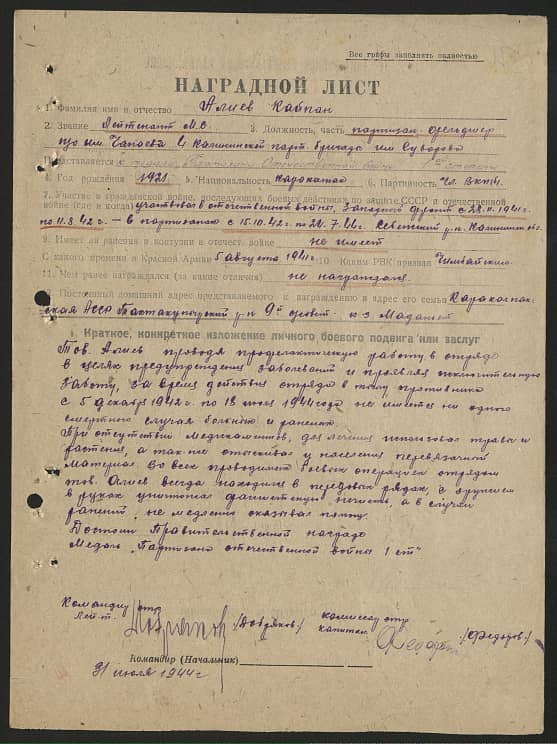 Все графы заполнять полностью
НАГРАДНОЙ ЛИСТ
1. Фамилия имя и отчество Алиев Каипан
2. Звание Лейтенант М.С. 3. Должность, часть партизан-фельдшер
п/о им. Чапаева 4 Калининской парт. бригады им. Суворова
Представляется к медали
4. Год рождения 1921. 5. Национальность Каракалпак 6. Партийность чл. ВКП/б/
7. Участие в гражданской войне, последующих боевых действиях по защите СССР и отечественной
войне (где и когда) участвовал в отечественной войны, Западной фронт с 28.11.1941г.
по 11.8.42 г. – в партизанах с 15.10.42г по 22.7.44г. р-н Калинин. обл.
9. Имеет ли ранения и контузии в отечест. войне не имеет
С какого времени в Красной Армии 5 августа 1941г. 10. Каким РВК призван Чимбайским
11. Чем ранее награждался (за какие отличия) не награждался.
Постоянный домашний адрес представляемого к награждению и адрес его семьи Каракалпак-
ская АССР р-н 9й к-з Маданият
1. Краткое, конкретное изложение личного боевого подвига или заслуг
Тов. Алиев проводя профилактическую работу в отряде
в целях предупреждения заболеваний и проявляя исключительную
заботу, за время действия отряда в тылу противника
с 5 декабря 1942г. по 18 июля 1944 года не имеется ни одного
смертного случая больных и раненых.
При отсутствии медикаментов, для лечения использовал травы и
растения, а так-же отыскивал у населения перевязочной
материал. Во всех проводимых боевых операциях отрядом
тов. Алиев всегда находился в передовых рядах, с оружием
в руках уничтожая фашистскую нечисть, а в случаи
ранений, не медленно оказывал помощь.
Достоин Правительственной награды
Медаль „Партизана отечественной войны 1 ст"
Командир отр.
Лейт-т /Добряков/
комиссар отр
капитан /Федоров/
Командир (Начальник)
31 июля 1944г